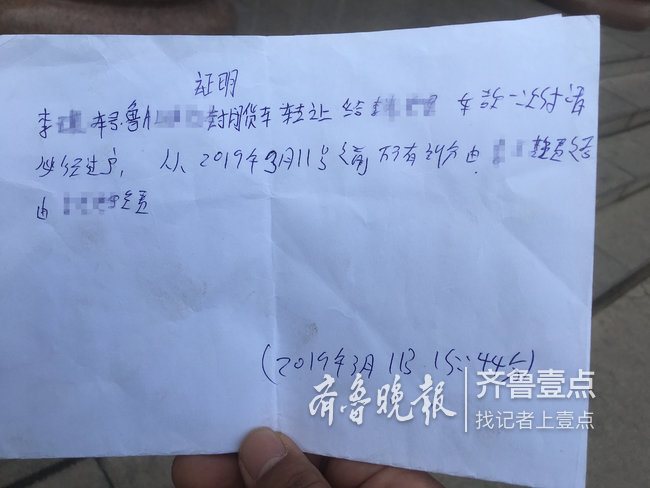 证明
李 车号鲁A 封闭货车转让给 车款一次付清
必须过户, 从2019年3月11号之前所有 由 负责之后
由 负责
(2019年3月11日 15:44分)
齐鲁晚报 齐鲁壹点
找记者上壹点